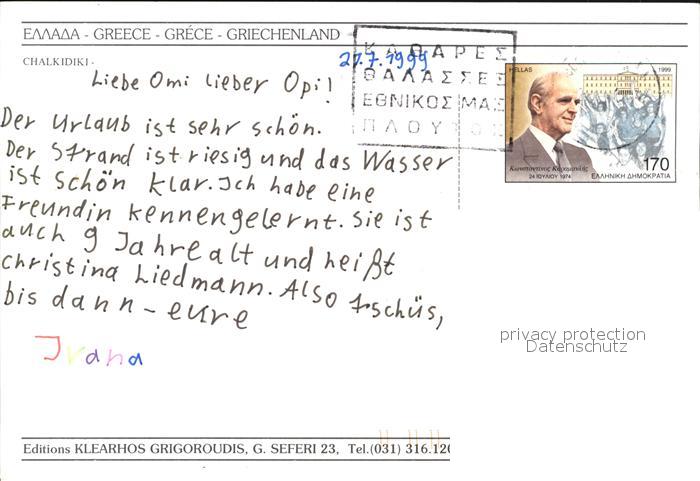 ΕΛΛΑΔΑ - GREECE - GRÉCE - GRIECHENLAND
CHALKIDIKI -
27.7.1999
ΚΑΘΑΡΕΣ
ΘΑΛΑΣΣΕΣ
ΕΘΝΙΚΟΣ ΜΑΣ
ΠΛΟΥΤΟΣ
HELLAS
1999
170
Κωνσταντίνος Καραμανλής
24 ΙΟΥΛΙΟΥ 1974
ΕΛΛΗΝΙΚΗ ΔΗΜΟΚΡΑΤΙΑ
Liebe Omi lieber Opi!
Der Urlaub ist sehr schön.
Der Strand ist riesig und das Wasser
ist schön klar. Ich habe eine
Freundin kennengelernt. Sie ist
auch 9 Jahre alt und heißt
christina Liedmann. Also tschüs,
bis dann - eure
Ivana
privacy protection
Datenschutz
Editions KLEARHOS GRIGOROUDIS, G. SEFERI 23, Tel.(031) 316.120